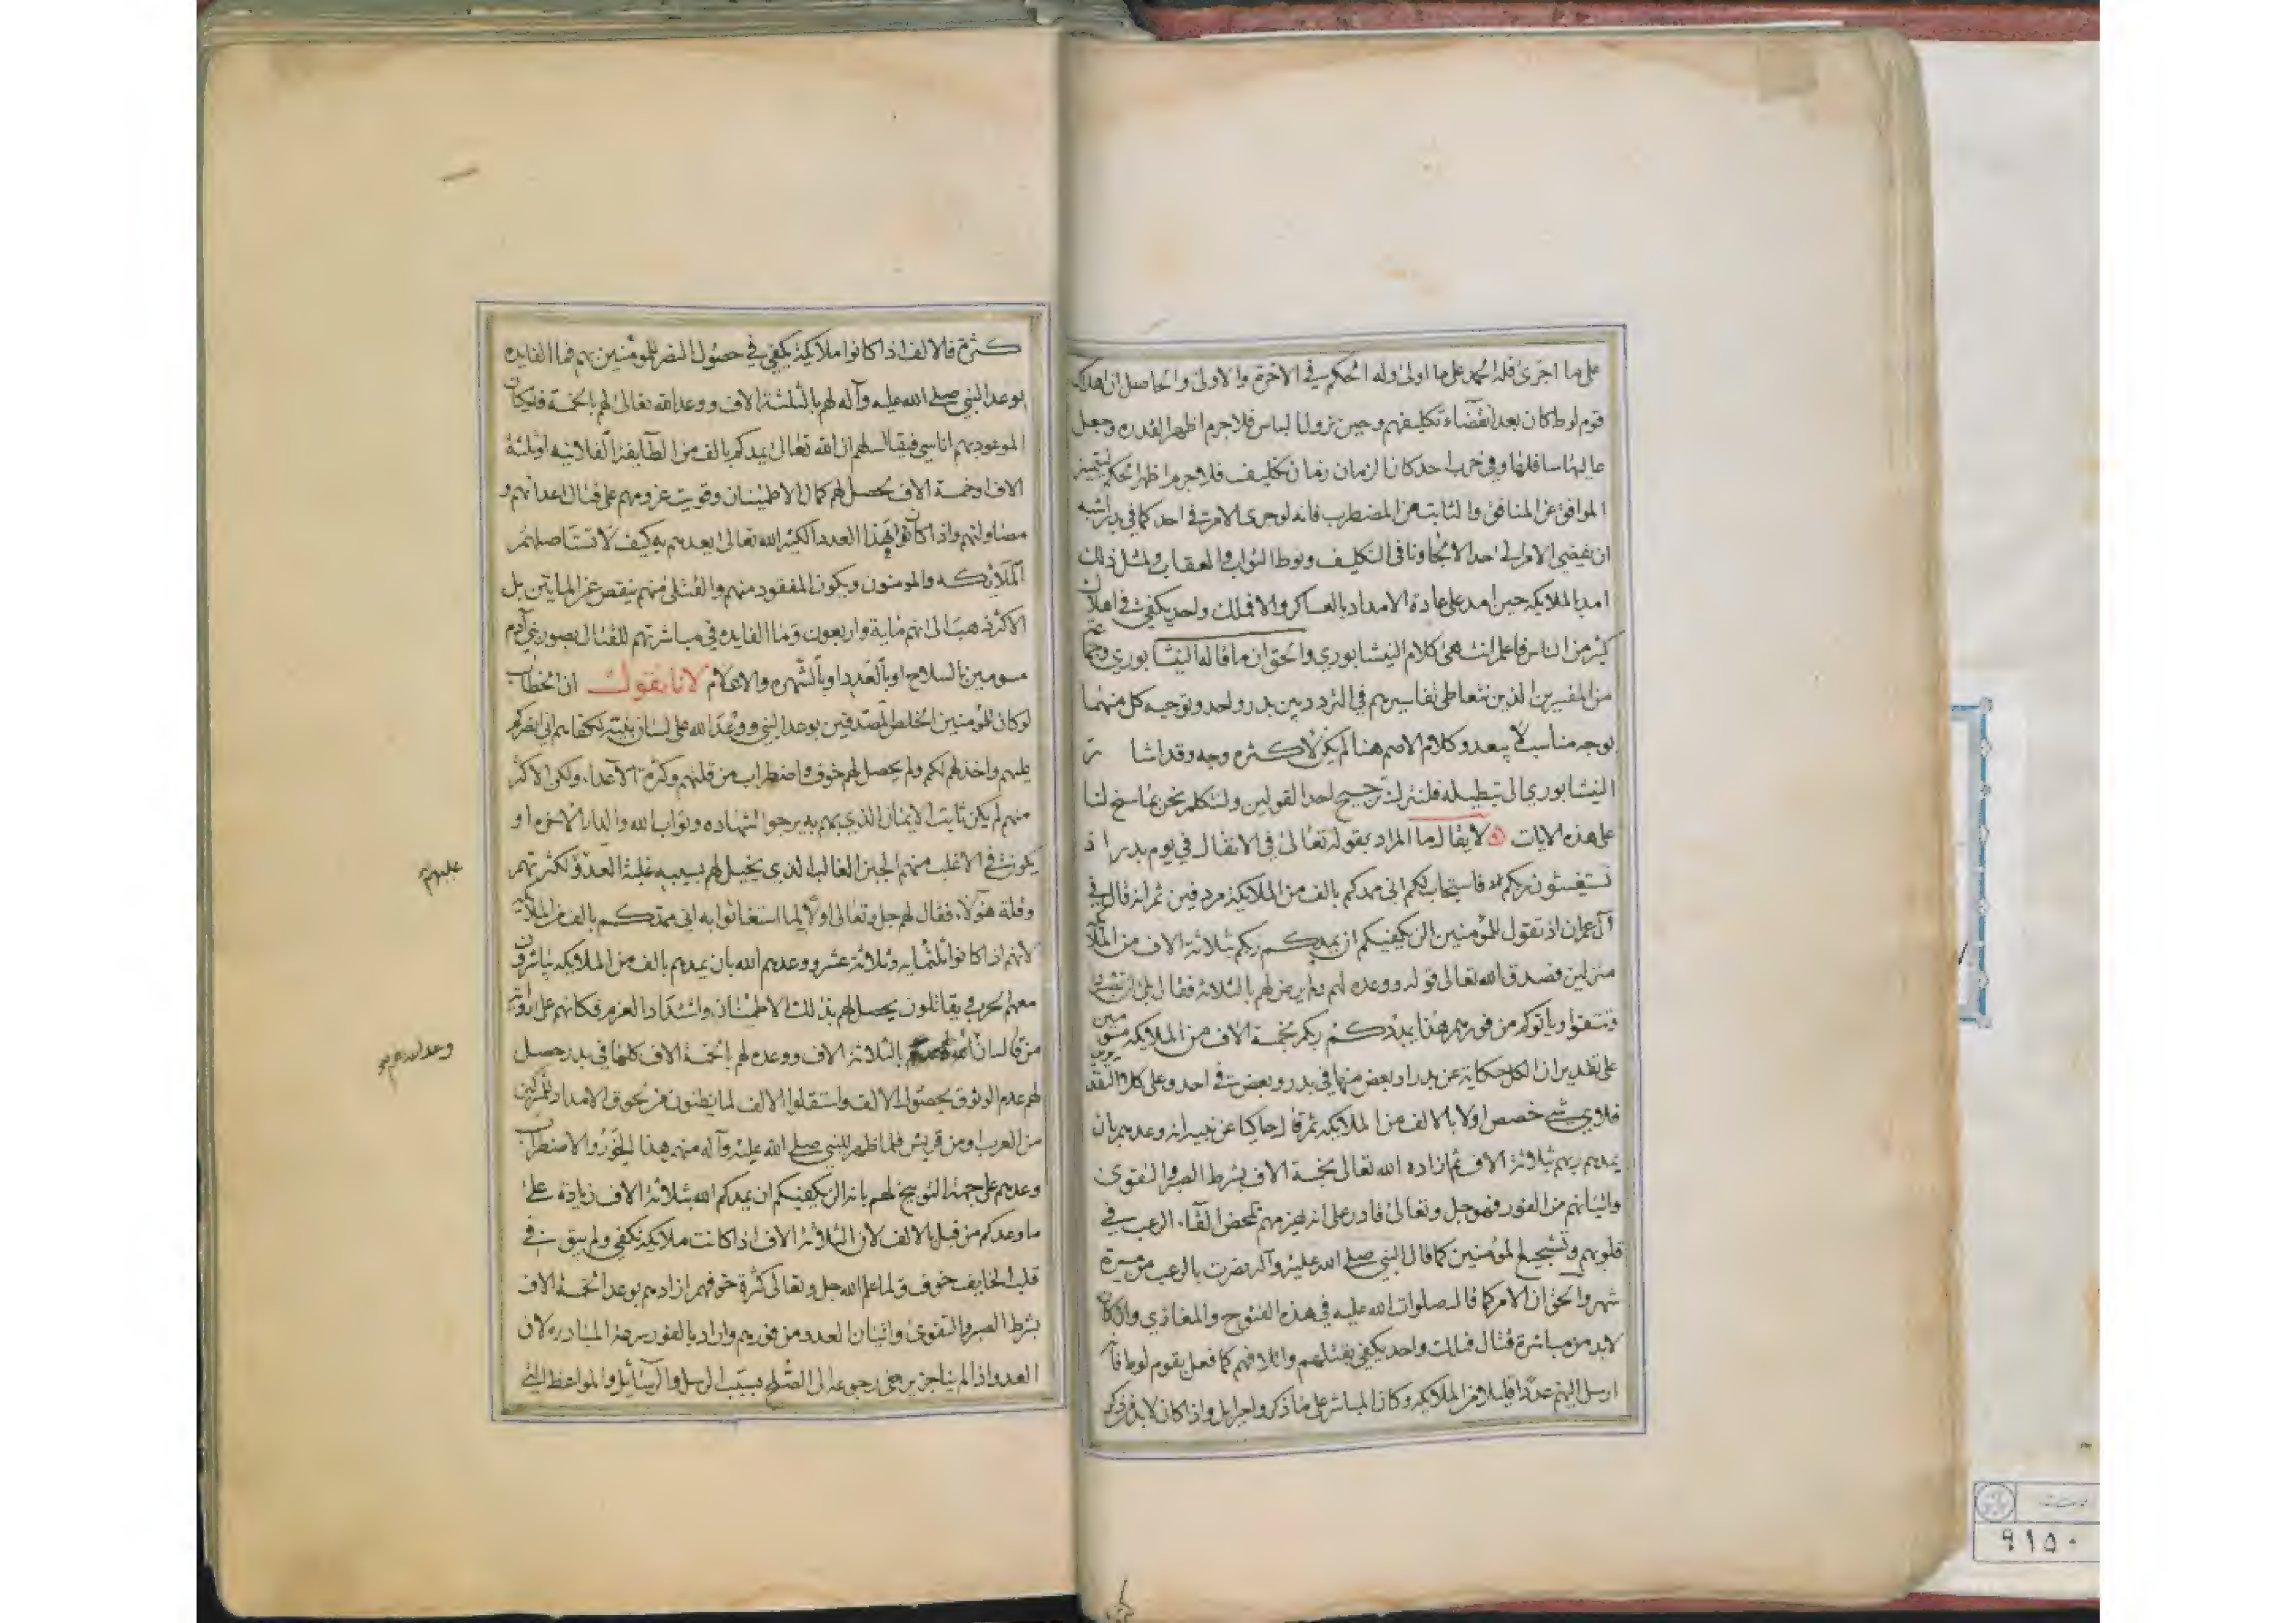 على ما اجرى فله الحمد على ما اولى وله الحكم في الاخرة والاولى والحاصل ان اهلاك
قوم لوط كان بعد انقضاء تكليفهم وحين نزول الباس فلا جرم اظهر القدره وجعل
عاليها سافلها وفي حرب احد كان الزمان زمان تكليف فلا جرم اظهر الحكم ليتميز
الموافق عن المنافق والثابت عن المضطرب فانه لو جرى الامر في احد كما في بدر اشبه
ان يفضي الامر الى حد الالجاء ونافى التكليف ونوط الثواب والعقاب ولمثل ذلك
امد بالملايكه حين امد على عادة الامداد بالعساكر والا فملك واحد يكفي في اهلاك
كثير من الناس فاعلم انتهى كلام النيشابوري والحق ان ما قاله النيشابوري وجماعة
من المفسرين الذين نتعاطى تفاسيرهم في التردد بين بدر واحد وتوجيه كل منهما
بوجه مناسب لا يبعد وكلام الاصم هنا لم يكن لاكثره وجه وقد اشار
النيشابوري الى تبطيله فلنترك ترجيح احد القولين ولنتكلم نحن بما سنح لنا
على هذه الايات لا يقال ما المراد بقوله تعالى في الانفال في يوم بدر اذ
تستغيثون ربكم فاستجاب لكم اني ممدكم بالف من الملايكة مردفين ثم انه قال في
آل عمران اذ تقول للمؤمنين الن يكفيكم ان يمدكم ربكم بثلاثة الاف من الملائكة
منزلين فصدق الله تعالى قوله ووعده لهم ولم يرض لهم بالثلاثة فقال بلى ان تصبروا
وتتقوا وياتوكم من فورهم هذا يمددكم ربكم بخمسة الاف من الملايكه مسومين
على تقدير ان الكل حكاية عن بدر او بعض منها في بدر وبعض في احد وعلى كلا التقديرين
فلاي شيء خصص اولا بالالف من الملايكه ثم قال حاكيا عن نبيه انه وعدهم بان
يمدهم ربهم بثلاثة الاف ثم ازاده الله تعالى بخمسة الاف بشرط الصبر والتقوى
واتيانهم من الفور فهو جل وتعالى قادر على انه يهزمهم بمحض القاء الرعب في
قلوبهم وتشجيع المؤمنين كما قال النبي صلى الله عليه وآله نصرت بالرعب من مسيرة
شهر والحق ان الامر كما قال صلوات الله عليه في هذه الفتوح والمغازي وان كان
لابد من مباشرة قتال فملك واحد يكفي بقتلهم واتلافهم كما فعل بقوم لوط فانه
ارسل اليهم عددا قليلا من الملايكه وكان المباشر على ما ذكروا جبرايل واذا كان لابد من ذكر
كثرة فالالف اذا كانوا ملايكة يكفي في حصول النصر للمؤمنين بهم فما الفايده
بوعد النبي صلى الله عليه وآله لهم بالثلثة الاف ووعد الله تعالى لهم بالخمسة فليكن
الموعود بهم اناسي فيقال لهم ان الله تعالى يمدكم بالف من الطايفة الفلانيه او ثلثة
الاف او خمسة الاف يحصل لهم كمال الاطمينان وقويت عزومهم على قتال اعدائهم و
مصاولتهم واذا كانوا بهذا العدد الكثير الله تعالى يعدهم به كيف لا تستاصلهم
الملائكه والمومنون ويكون المفقود منهم والقتلى منهم ينقص عن المايتين بل
الاكثر ذهب الى انهم ماية واربعون وما الفايده في مباشرتهم للقتال بصور بني آدم
مسومين بالسلاح او بالعدد او بالشهره والاعلام لانا نقول ان الخطاب
لو كان للمؤمنين الخلص المصدقين بوعد النبي ووعد الله على لسان نبيه لكفاهم اني انصركم
عليهم واخذلهم لكم ولم يحصل لهم خوف واضطراب من قلتهم وكثرة الاعداء ولكن الاكثر
منهم لم يكن ثابت الايمان الذي بهم به يرجوا الشهاده وثواب الله والدار الاخره او
يكون في الاغلب منهم الجبن الغالب الذي يخيل لهم بسببه غلبة العدو لكثرتهم
وقلة هؤلاء فقال لهم جل وتعالى اولا لما استغاثوا به اني ممدكم بالف من الملائكة
لانهم اذا كانوا ثلثمايه وثلاثة عشر ووعدهم الله بان يمدهم بالف من الملايكه يباشرون
معهم الحرب ويقاتلون يحصل لهم بذلك الاطمينان واشتداد العزم فكانهم على
من قال ان بالثلاثة الاف ووعده لهم بالخمسة الاف كلها في بدر حصل
لهم عدم الوثوق بحصول الالف واستقلوا الالف لما يظنون من لحوق الامداد للمشركين
من العرب ومن قريش فلما ظهر للنبي صلى الله عليه وآله منهم هذا الخور والاضطراب
وعدهم على جهة التوبيخ لهم بانه الن يكفيكم ان يمدكم الله بثلاثة الاف زيادة على
ما وعدكم من قبل بالالف لان الثلاثة الاف اذا كانت ملايكة تكفي ولم يبق في
قلب الخايف خوف ولما علم الله جل وتعالى كثرة خوفهم ازادهم بوعد الخمسة الاف
بشرط الصبر والتقوى واتيان العدو من فورهم واراد بالفور سرعة المبادره لان
العدو اذا لم يناجز يرجى رجوعه الى الصلح بسبب الرسل والرسائل والمواعظ التي
عليهم
وعد الله
٩١٥٠